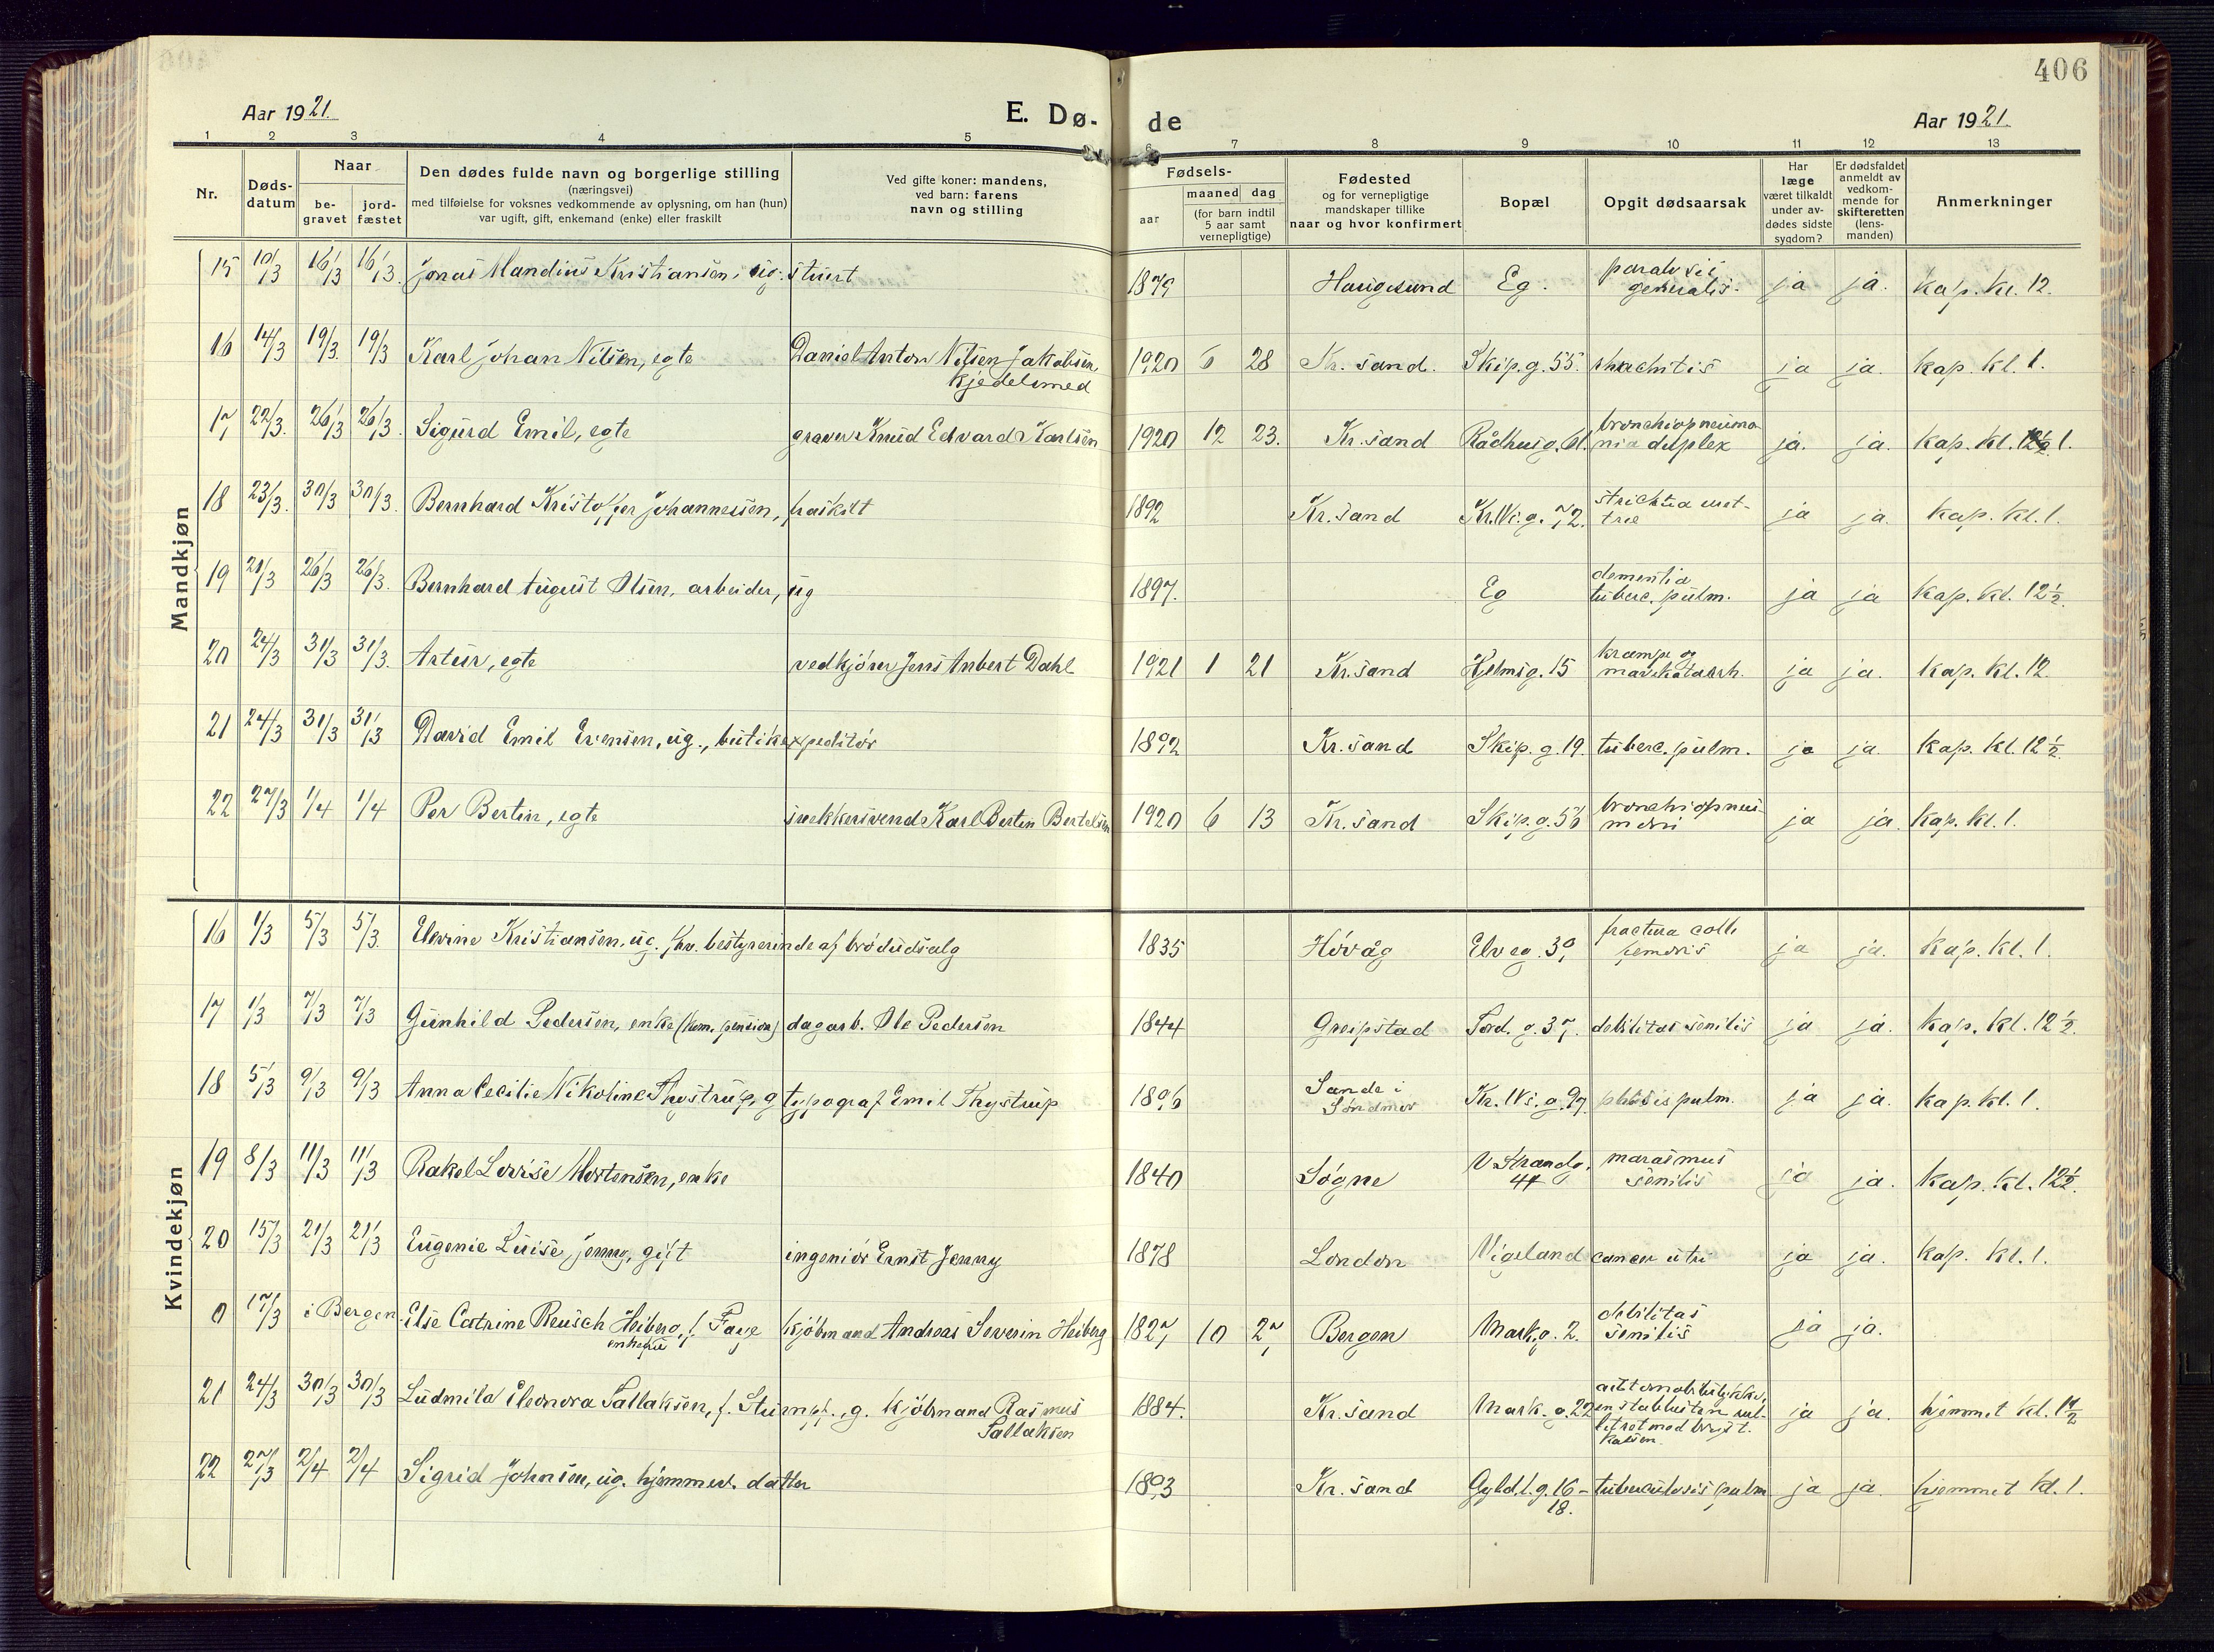 406
Aar 1921. E. Dø- de Aar 1921.
1 2 3 4 5 6 7 8 9 10 11 12 13
Nr. Døds-datum Naar be-gravet jord-fæstet
Den dødes fulde navn og borgerlige stilling
(næringsvei)
med tilføielse for voksnes vedkommende av oplysning, om han (hun)
var ugift, gift, enkemand (enke) eller fraskilt
Ved gifte koner: mandens,
ved barn: farens
navn og stilling
Fødsels-
aar maaned dag
(for barn indtil
5 aar samt
vernepligtige)
Fødested
og for vernepligtige
mandskaper tillike
naar og hvor konfirmert
Bopæl
Opgit dødsaarsak
Har
læge
været tilkaldt
under av-
dødes sidste
sygdom?
Er dødsfaldet
anmeldt av
vedkom-
mende for
skifteretten
(lens-
manden)
Anmerkninger
Mandkjøn
15 10/3 16/3 16/3. Jonas Mandius Kristiansen, ug. stuert 1879 Haugesund Eg. paralysis generalis. ja ja. kap. kl. 12.
16 14/3 19/3. 19/3 Karl Johan Nilsen, egte Daniel Anton Nilsen Jakobsen, kjedelsmed 1920 6 28 Kr.sand. Skip.g. 55. rhachitis ja ja. kap. kl. 1.
17 22/3. 26/3 26/3. Sigurd Emil, egte graver Knud Edvard Karlsen 1920 12 23. Kr.sand Rådhusg. 61. bronchiopneumonia duplex ja. ja. kap. kl. 12½ 1.
18 23/3. 30/3 30/3. Bernhard Kristoffer Johannessen, fraskilt 1892 Kr.sand Kr.IV.g. 72. ja ja. kap. kl. 1.
19 21/3 26/3 26/3. Bernhard August Olsen, arbeider, ug 1897. Eg dementia tuberc. pulm. ja ja kap. kl. 12½.
20 24/3 31/3 31/3. Artur, egte vedkjører Jens Anbert Dahl 1921 1 21 Kr.sand Holmsg. 15 krampe og mavekatarrh. ja ja. kap. kl. 12.
21 24/3 31/3 31/3 David Emil Evensen, ug., butikexpeditør 1892 Kr.sand Skip.g. 19. tuberc. pulm. ja ja. kap. kl. 12½.
22 27/3 1/4 1/4 Per Bertin, egte snekkersvend Karl Bertin Bertelsen 1920 6 13 Kr.sand Skip.g. 56 bronchiopneumoni ja ja. kap. kl. 1.
Kvindekjøn
16 1/3 5/3 5/3. Elevine Kristiansen, ug. fhv. bestyrerinde af brødudsalg 1835 Høvåg Elveg. 39 fractura colli femoris ja ja. kap. kl. 1.
17 1/3 7/3 7/3 Gunhild Pedersen, enke (kom. pension) dagarb. Ole Pedersen 1844 Greipstad Tord. g. 37. debilitas senilis ja ja. kap. kl. 12½.
18 5/3 9/3 9/3 Anna Cecilie Nikoline Thystrup, g typograf Emil Thystrup 1896 Sande i Søndmør Kr. IVs. g. 97 phtisis pulm. ja ja. kap. kl. 1.
19 8/3 11/3 11/3 Rakel Lovise Mortensen, enke 1840 Søgne V Strandg. 44 marasmus senilis ja ja. kap. kl. 12½.
20 15/3 21/3 21/3 Eugenie Luise Jenny, gift ingeniør Ernst Jenny 1878 London Vigeland cancer utri ja ja. kap. kl. 1.
0 17/3 i Bergen. Else Catrine Reusch Heiberg, f. Faye enkefru kjøbmand Andreas Severin Heiberg 1827 10 27 Bergen Mark.g. 2. debilitas senilis ja ja.
21 24/3 30/3 30/3 Ludmila Eleonora Sallaksen, f. Stumpf., g. kjøbmand Rasmus Sallaksen 1884. Kr.sand Mark. g. 22 ja ja. hjemmet kl.
22 27/3 2/4 2/4 Sigrid Johnsen, ug. hjemmev. datter 1893 Kr.sand Gyld.l.g. 16-18. tuberculosis pulm ja ja. hjemmet kl. 1.